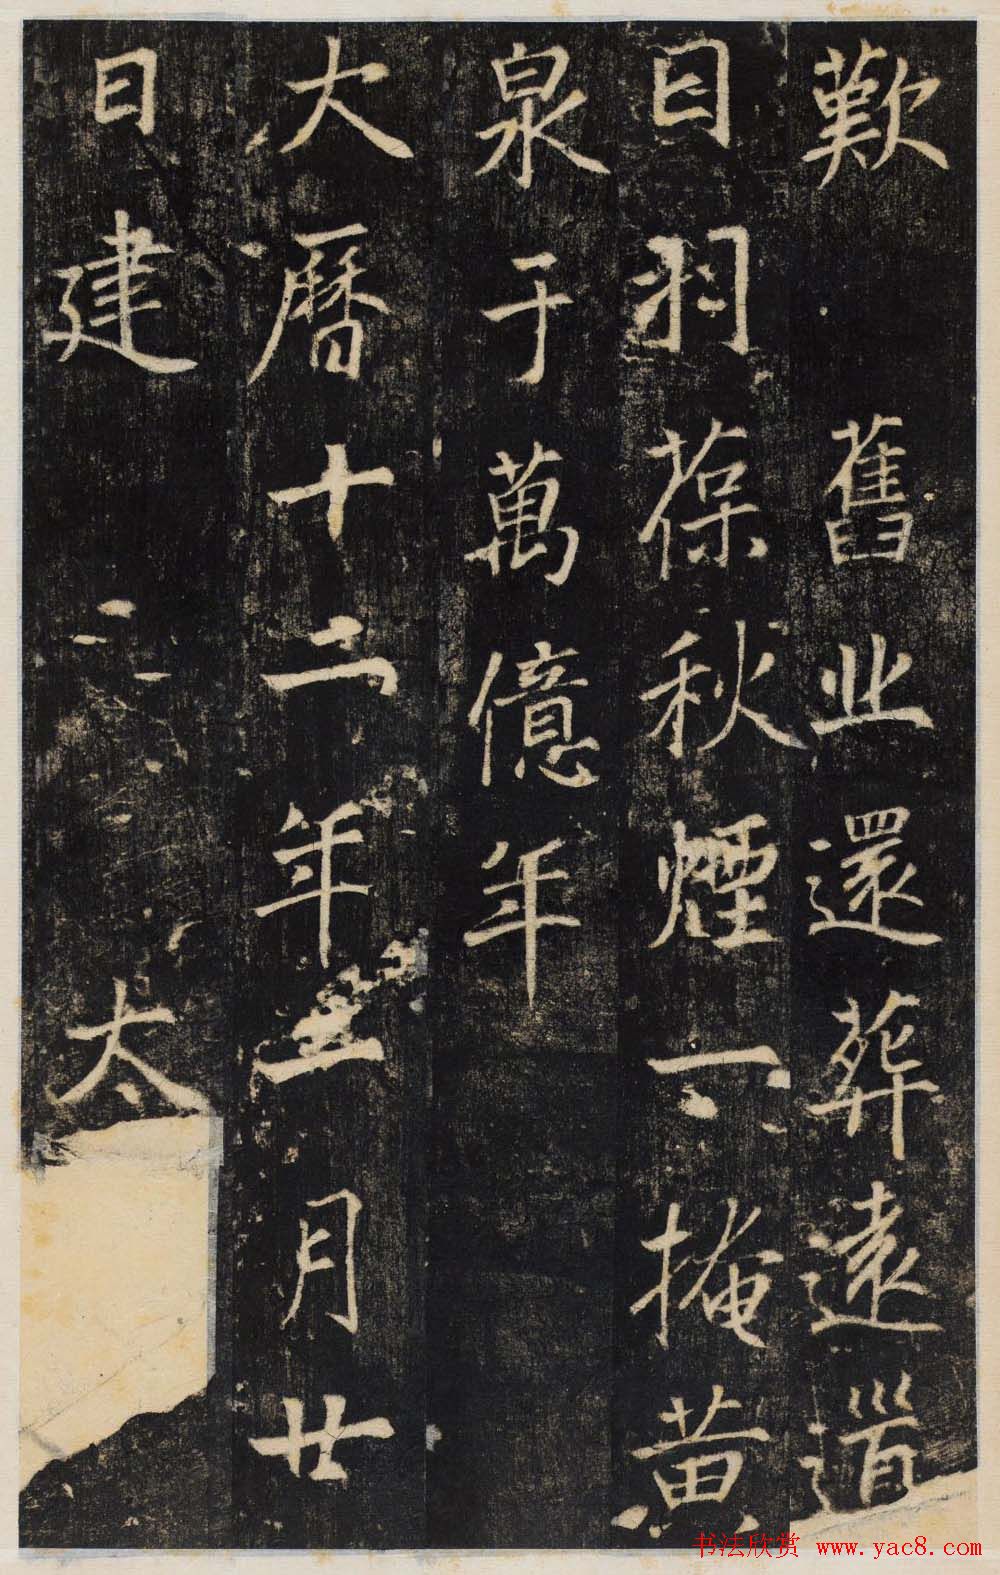 歎舊丘還葬遠道
日羽葆秋煙一掩黃
泉于萬億年
大曆十二年月廿
日建太
书法欣赏 www.yac8.com